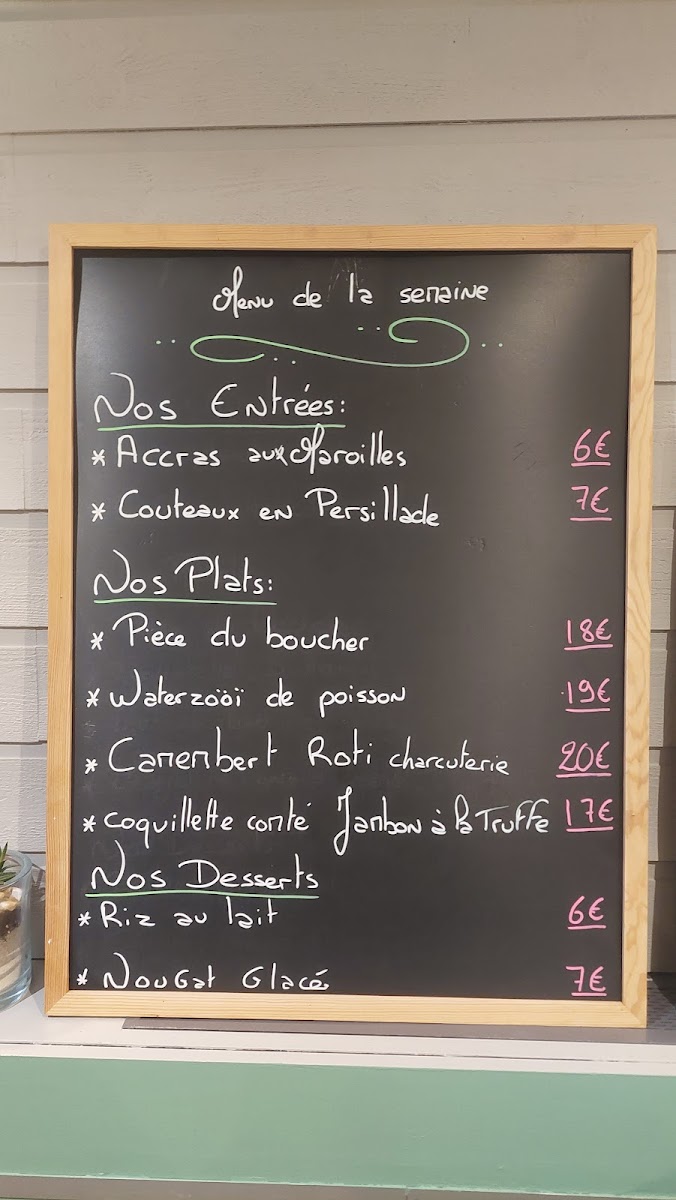 Menu de la semaine
Nos Entrées:
* Accras aux Maroilles 6€
* Couteaux en Persillade 7€
Nos Plats:
* Pièce du boucher 18€
* Waterzoöï de poisson 19€
* Camembert Roti charcuterie 20€
* coquillette comté Jambon à la Truffe 17€
Nos Desserts
* Riz au lait 6€
* Nougat Glacé 7€